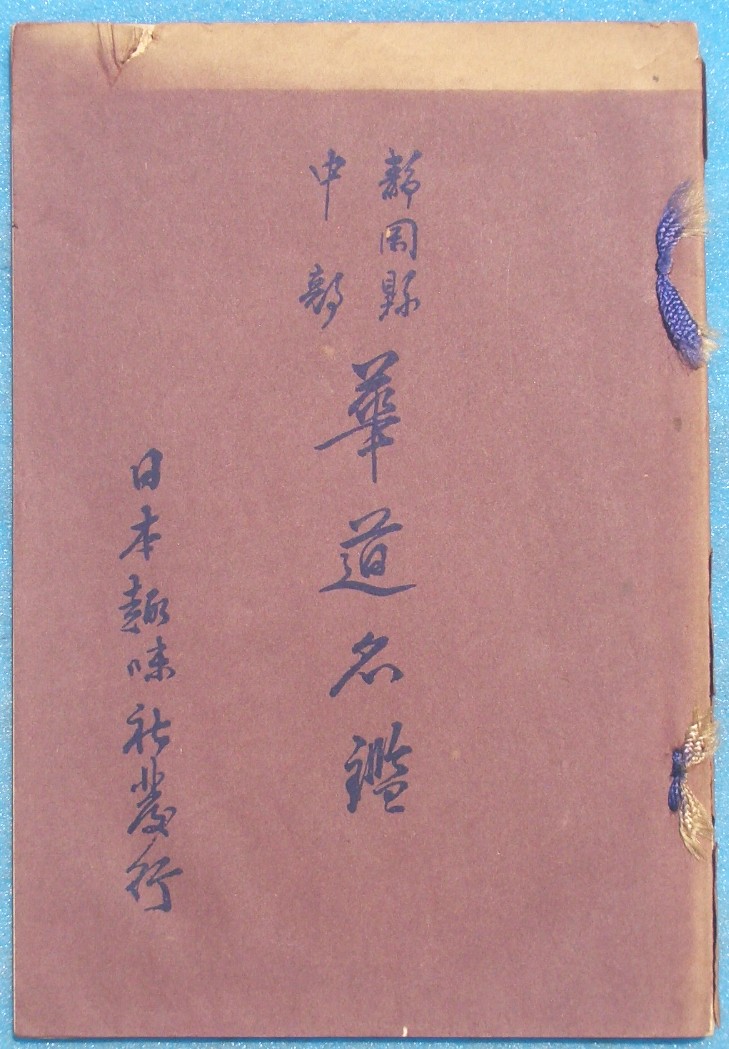 靜岡縣
中部
華道名鑑
日本趣味社發行